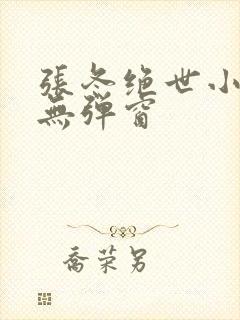 張冬绝世小
無弹窗
喬荣另